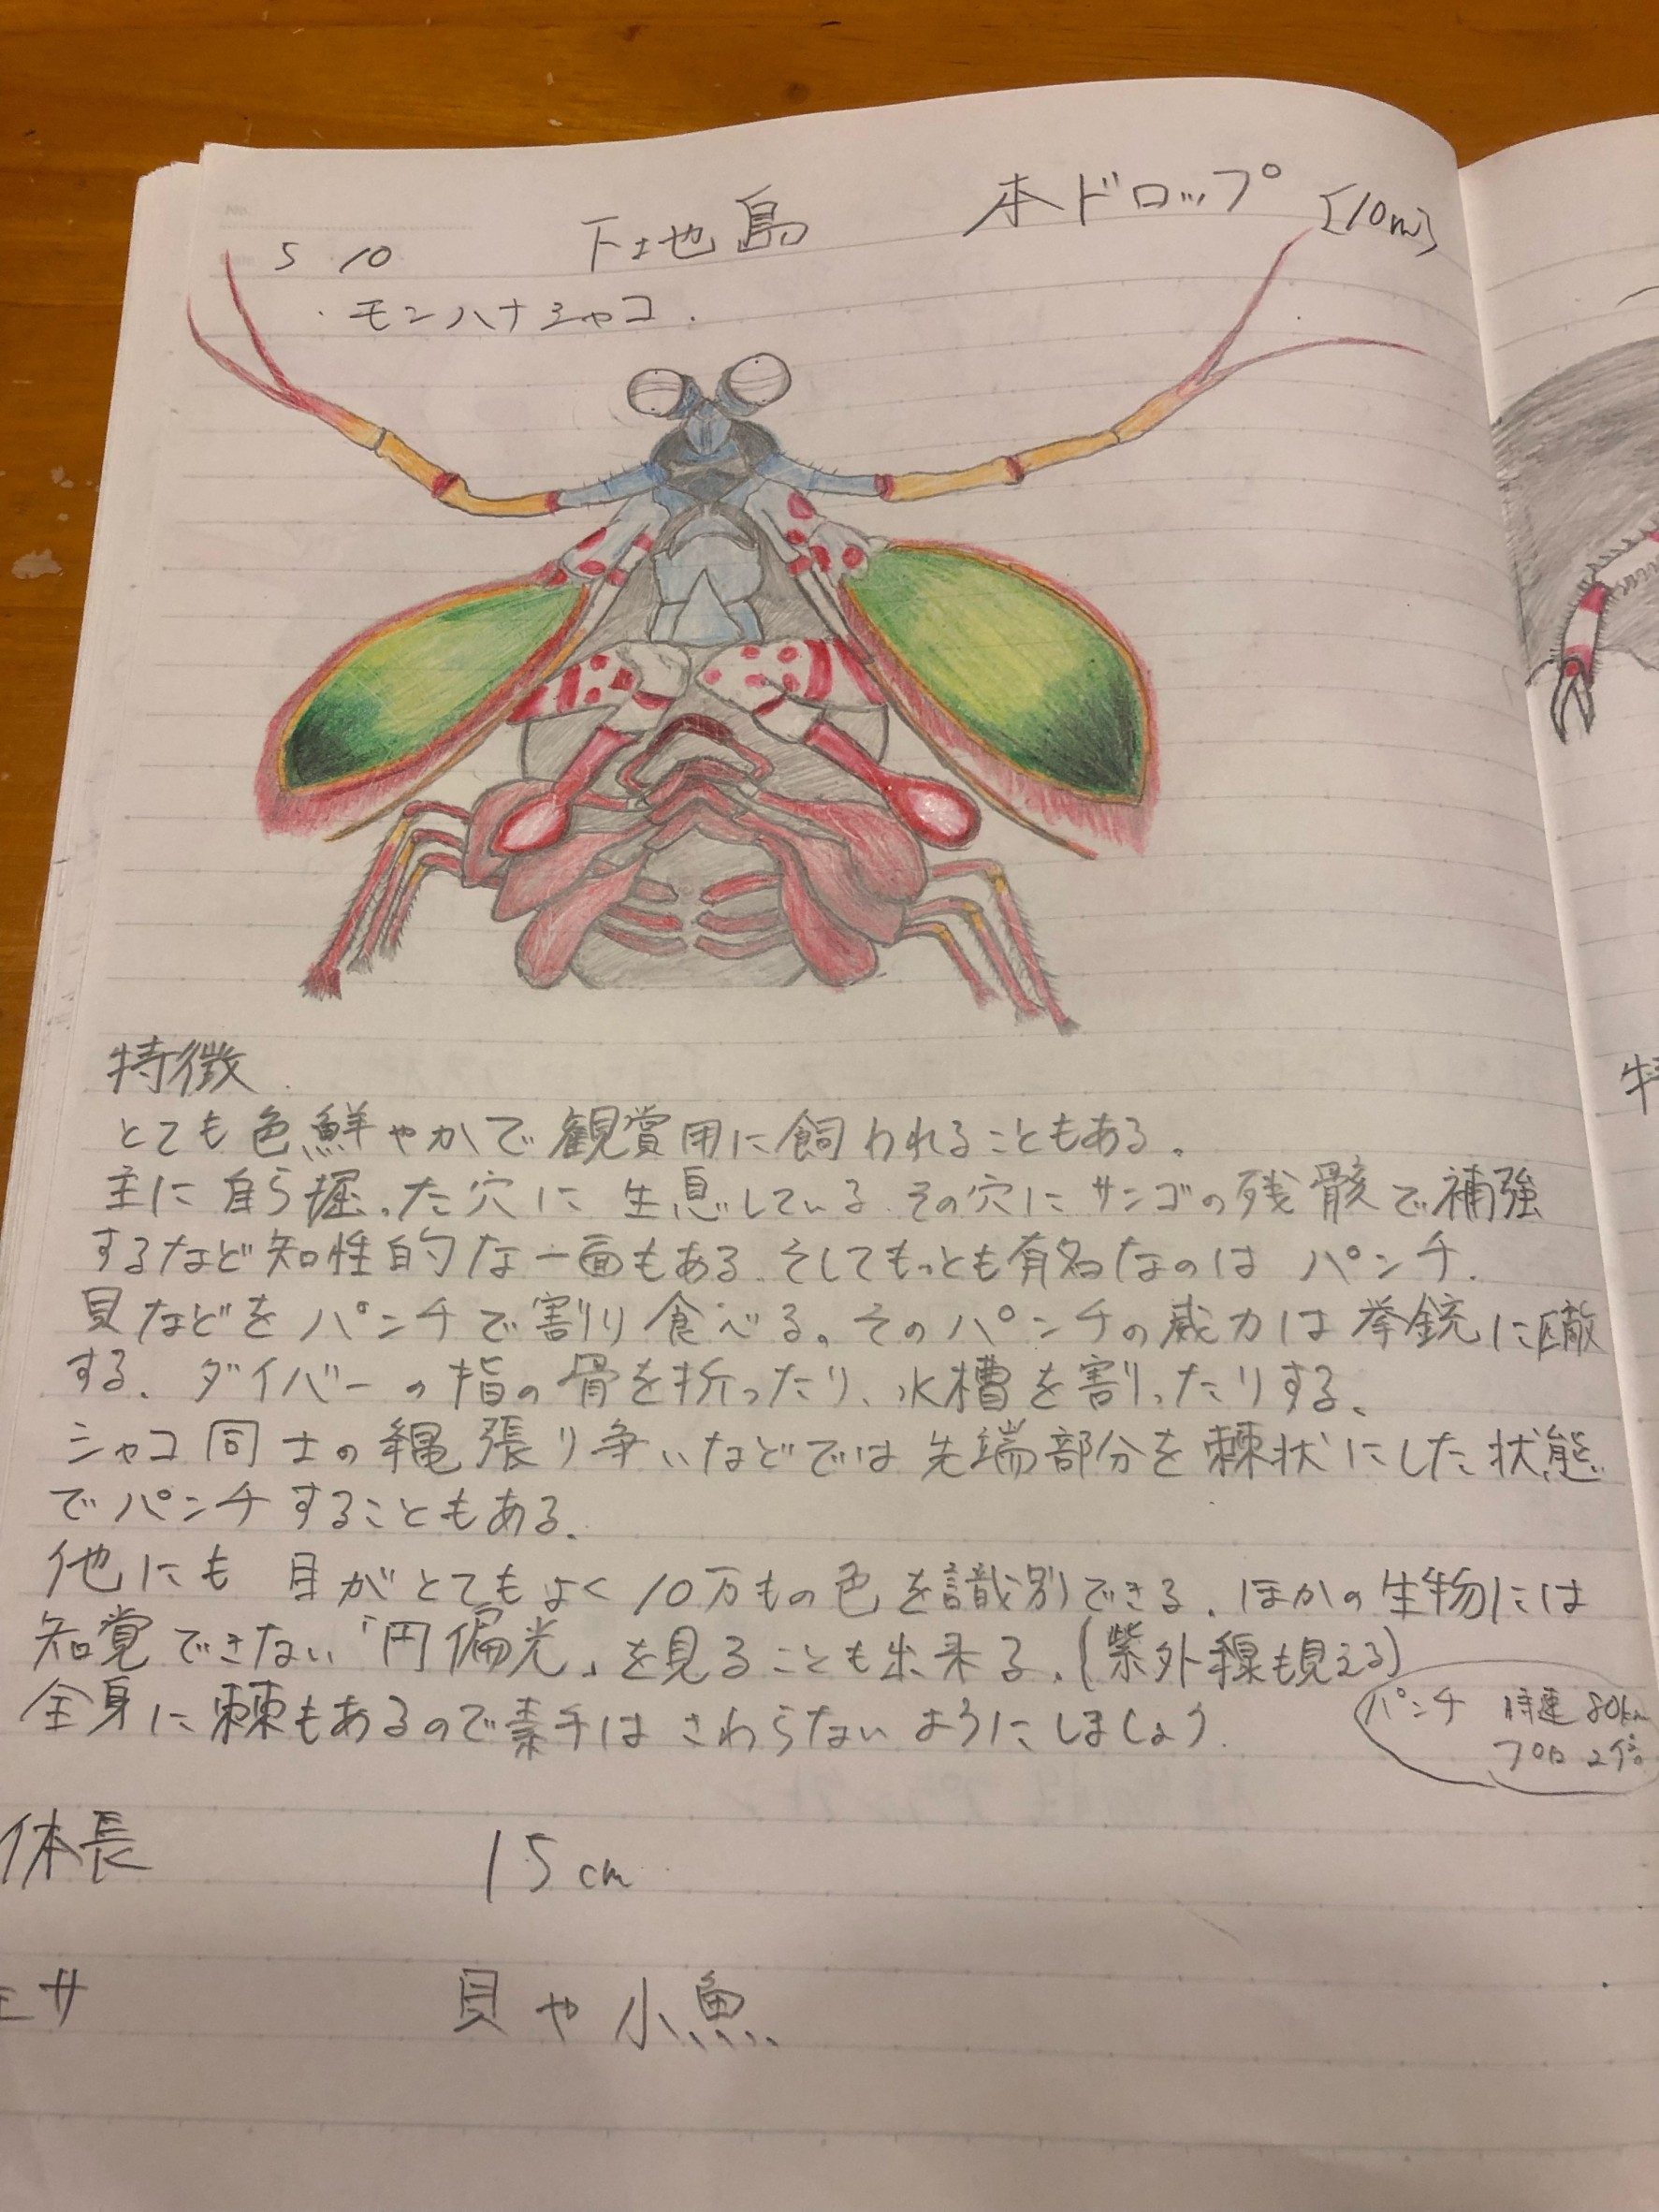 5 10 下地島 本ドロップ [10m]
・モンハナシャコ.
特徴
とても色鮮やかで観賞用に飼われることもある。
主に自ら掘った穴に生息している。その穴にサンゴの残骸で補強
するなど知性的な一面もある。そしてもっとも有名なのはパンチ.
貝などをパンチで割り食べる。そのパンチの威力は拳銃に匹敵
する。ダイバーの指の骨を折ったり、水槽を割ったりする。
シャコ同士の縄張り争いなどでは先端部分を棘状にした状態
でパンチすることもある。
他にも目がとてもよく10万もの色を識別できる。ほかの生物には
知覚できない「円偏光」を見ることも出来る。(紫外線も見える)
全身に棘もあるので素手はさわらないようにしましょう
パンチ 時速80km
プロ 2倍
体長 15cm
エサ 貝や小魚
特